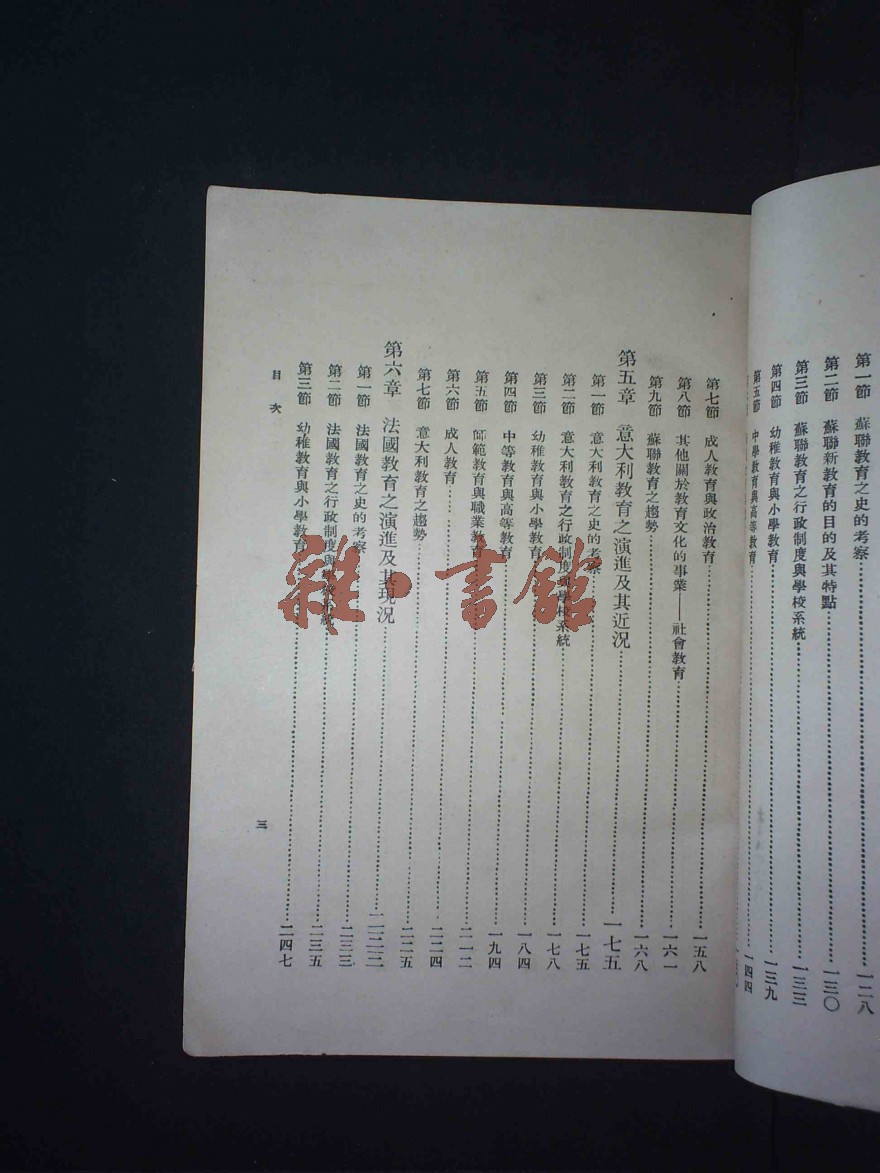 第一節　蘇聯教育之史的考察……一二八
第二節　蘇聯新教育的目的及其特點……一三〇
第三節　蘇聯教育之行政制度與學校系統……一三三
第四節　幼稚教育與小學教育……一三九
第五節　中學教育與高等教育……一四四
第七節　成人教育與政治教育……一五八
第八節　其他關於教育文化的事業——社會教育……一六一
第九節　蘇聯教育之趨勢……一六八
第五章　意大利教育之演進及其近況……一七五
第一節　意大利教育之史的考察……一七五
第二節　意大利教育之行政制度與學校系統……一七八
第三節　幼稚教育與小學教育……一八四
第四節　中等教育與高等教育……一九四
第五節　師範教育與職業教育……二一二
第六節　成人教育……二二四
第七節　意大利教育之趨勢……二二五
第六章　法國教育之演進及其現況……
第一節　法國教育之史的考察……二三三
第二節　法國教育之行政制度與學校系統……二三五
第三節　幼稚教育與小學教育……二四七
目次
三
雜·書館